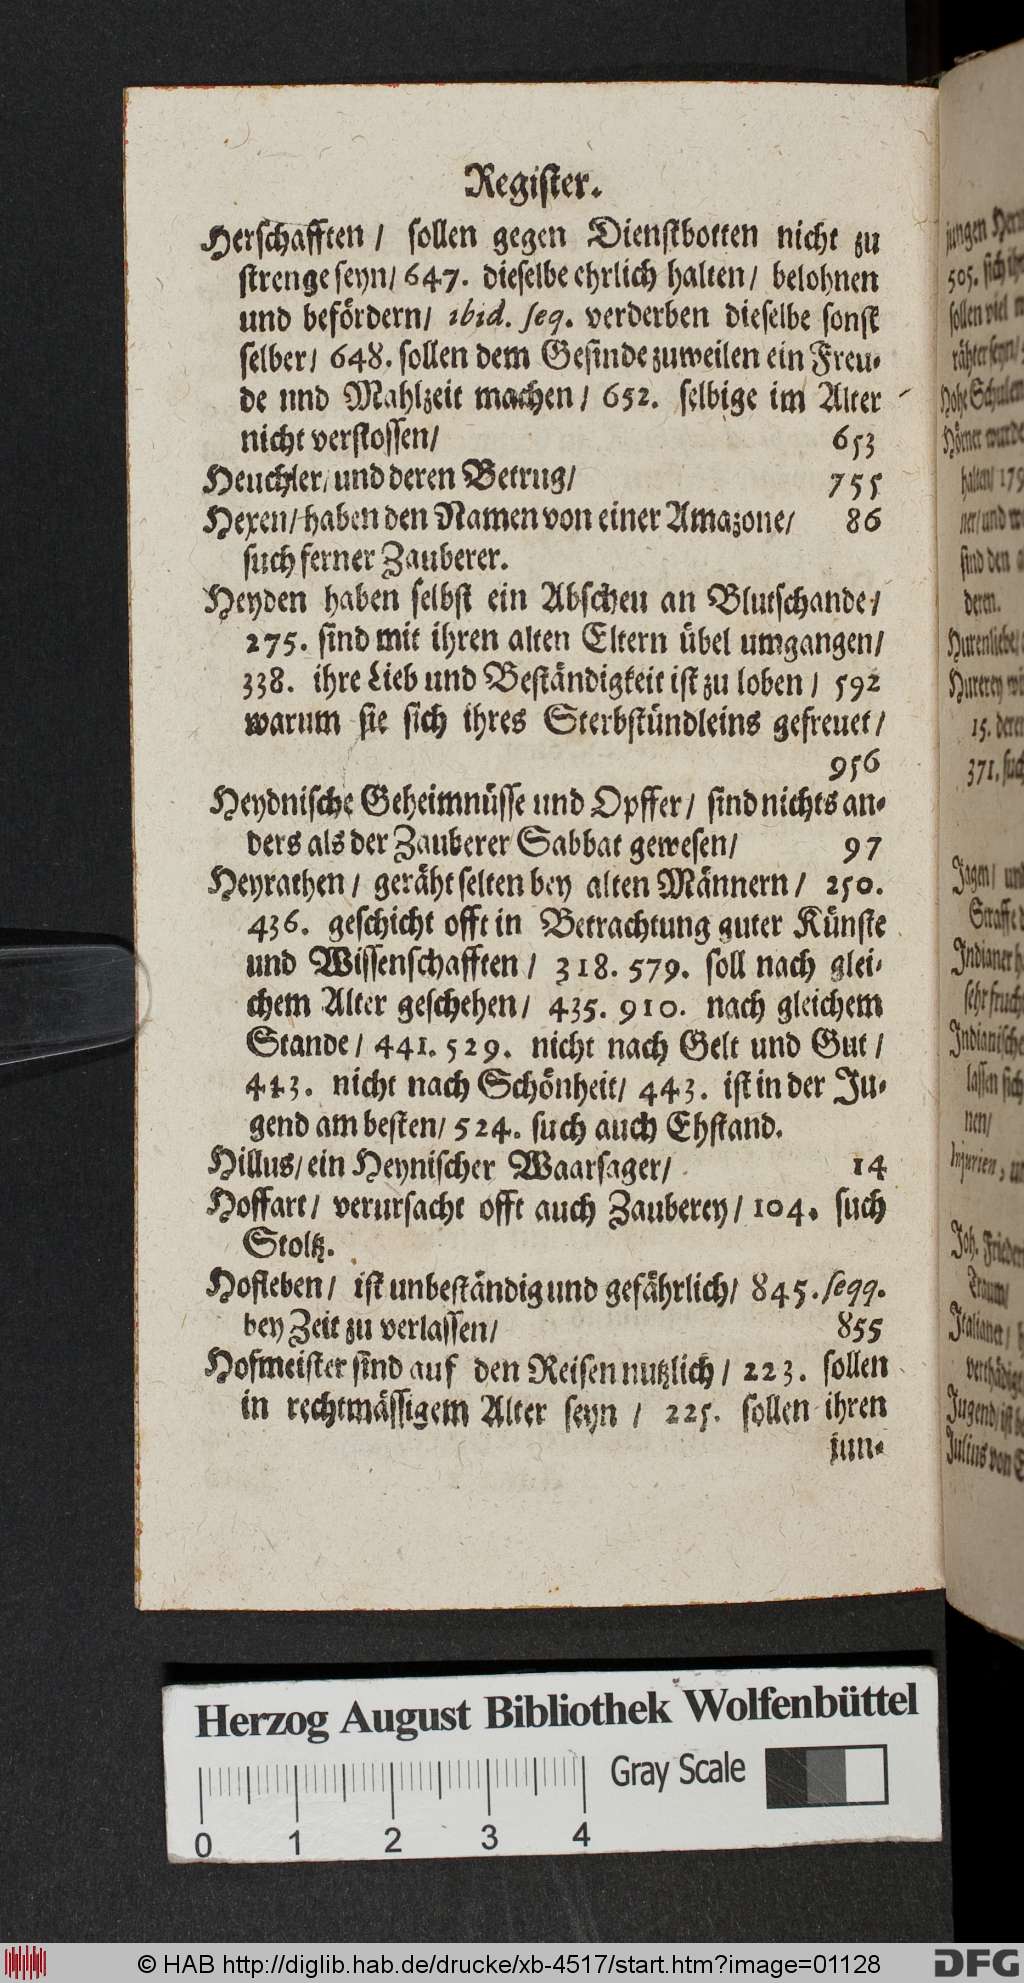 Register.
Herschafften / sollen gegen Dienstbotten nicht zu
strenge seyn / 647. dieselbe ehrlich halten / belohnen
und befördern / ibid. seq. verderben dieselbe sonst
selber / 648. sollen dem Gesinde zuweilen ein Freu-
de und Mahlzeit machen / 652. selbige im Alter
nicht verstossen / 653
Heuchler / und deren Betrug / 755
Hexen / haben den Namen von einer Amazone / 86
such ferner Zauberer.
Heyden haben selbst ein Abscheu an Blutschande /
275. sind mit ihren alten Eltern übel umgangen /
338. ihre Lieb und Beständigkeit ist zu loben / 592
warum sie sich ihres Sterbstündleins gefreuet /
956
Heydnische Geheimnüsse und Opffer / sind nichts an-
ders als der Zauberer Sabbat gewesen / 97
Heyrathen / geräht selten bey alten Männern / 250.
436. geschicht offt in Betrachtung guter Künste
und Wissenschafften / 318. 579. soll nach glei-
chem Alter geschehen / 435. 910. nach gleichem
Stande / 441. 529. nicht nach Gelt und Gut /
443. nicht nach Schönheit / 443. ist in der Ju-
gend am besten / 524. such auch Ehstand.
Hillus / ein Heynischer Waarsager / 14
Hoffart / verursacht offt auch Zauberey / 104. such
Stoltz.
Hofleben / ist unbeständig und gefährlich / 845. seqq.
bey Zeit zu verlassen / 855
Hofmeister sind auf den Reisen nutzlich / 223. sollen
in rechtmässigem Alter seyn / 225. sollen ihren
jun-
jungen
505. sich
sollen viel
Hohe Schulen
halten / 179
sind den
deren.
Hurenliebe /
Hurerey
15. deren
371. such
Jagen / und
Straffe
Indianer
sehr
Indianische
lassen sich
nen /
Injurien,
Joh. Frieder
Traum /
Italianer /
Jugend / ist
Julius von
Herzog August Bibliothek Wolfenbüttel
Gray Scale
0 1 2 3 4
© HAB http://diglib.hab.de/drucke/xb-4517/start.htm?image=01128
DFG